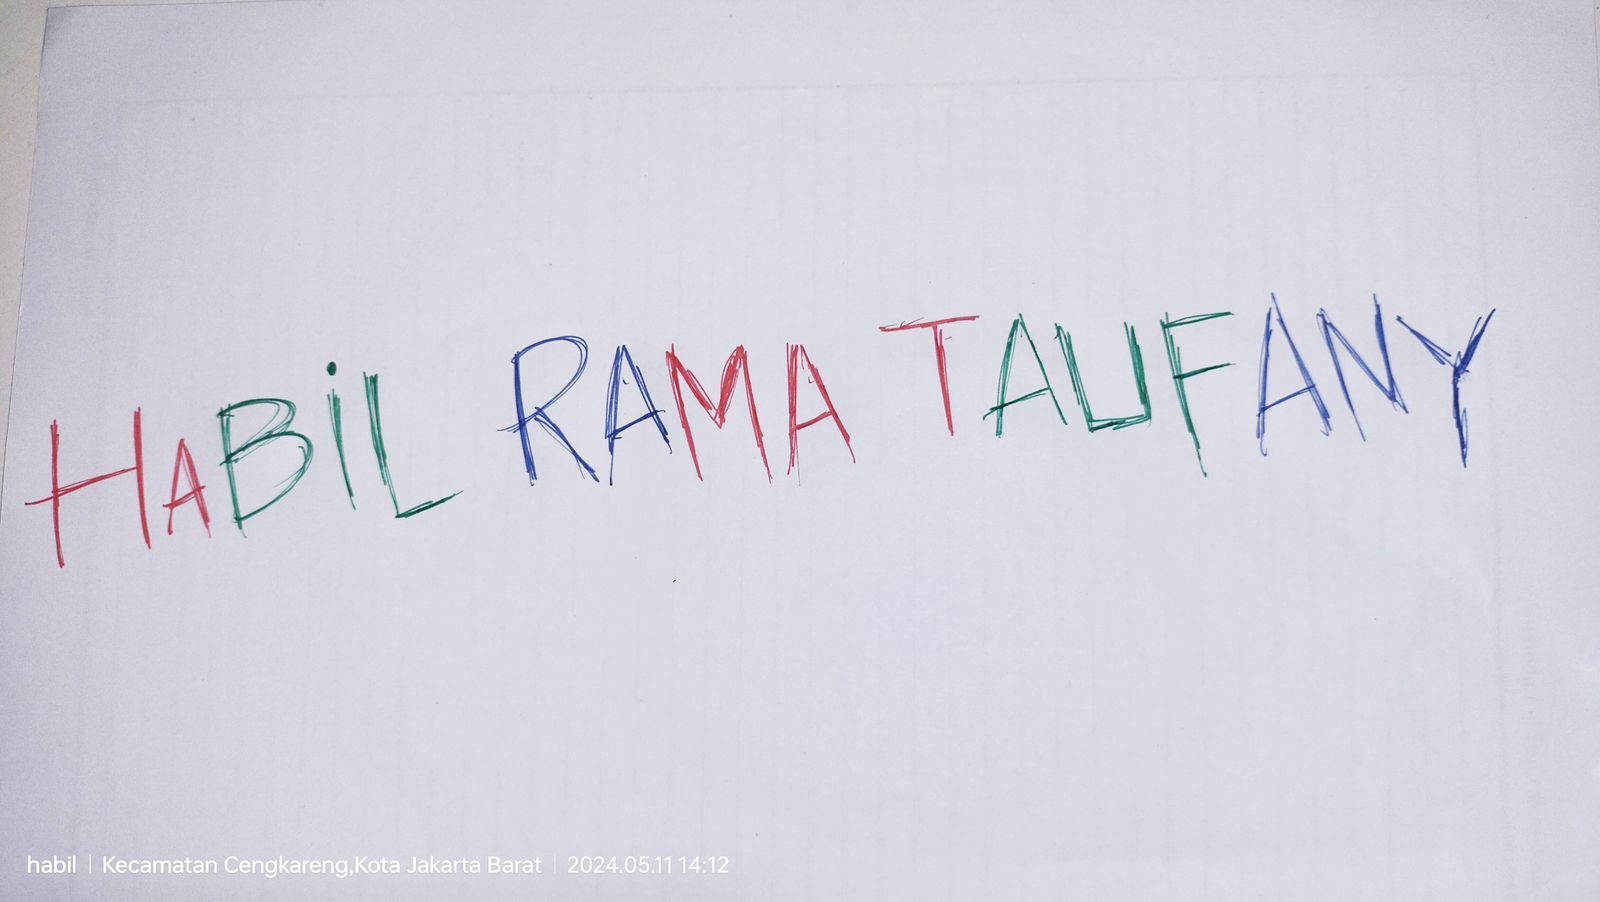 HaBiL RAMA TAUFANY
habil | Kecamatan Cengkareng,Kota Jakarta Barat | 2024.05.11 14:12